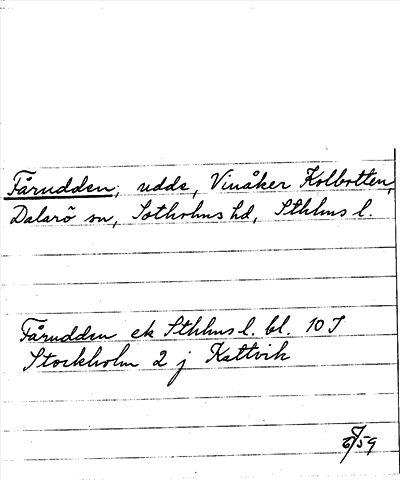 Fårudden, udde, Vinåker Kolbotten,
Dalarö sn, Sotholms hd, Sthlms l.
Fårudden ek Sthlms l. bl. 10 I
Stockholm 2 j Kattvik
59